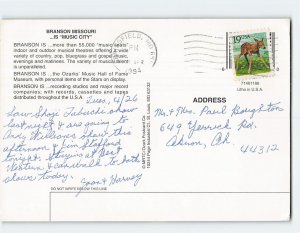 BRANSON MISSOURI
...IS "MUSIC CITY"
BRANSON IS ...more than 55,000 "music seats"
indoor and outdoor musical theatres offering a wide
variety of country, pop, bluegrass and gospel music,
evenings and matinees. The variety of musical talent
is unparalleled.
BRANSON IS ...the Ozarks' Music Hall of Fame
Museum, with personal items of its stars on display.
BRANSON IS ...recording studios and major record
companies; with records, cassettes and tapes
distributed throughout the U.S.A.
Tues, 4/26
Saw Shoji Tabuchi show
last night & are going to
Andy Williams show this
afternoon & Jim Stafford
tonight. Staying at Best
Western & can walk to both
shows today.
Joan & Harvey
DO NOT WRITE BELOW THIS LINE
PM
1994
19
USA
71461186
Litho in U.S.A.
ADDRESS
Mr. & Mrs. Paul
649
Akron, Oh.
44312